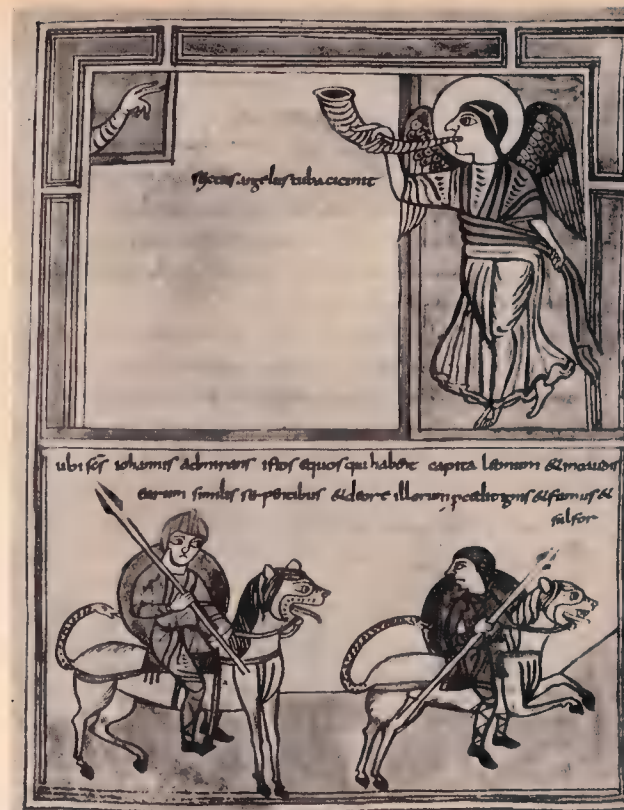 sextus angelus tuba cecinit
ubi scs iohannis admirans istos equos qui habent capita leonum & in caudis
earum similis serpentibus & de ore illorum procedit ignis & fumus &
sulfor